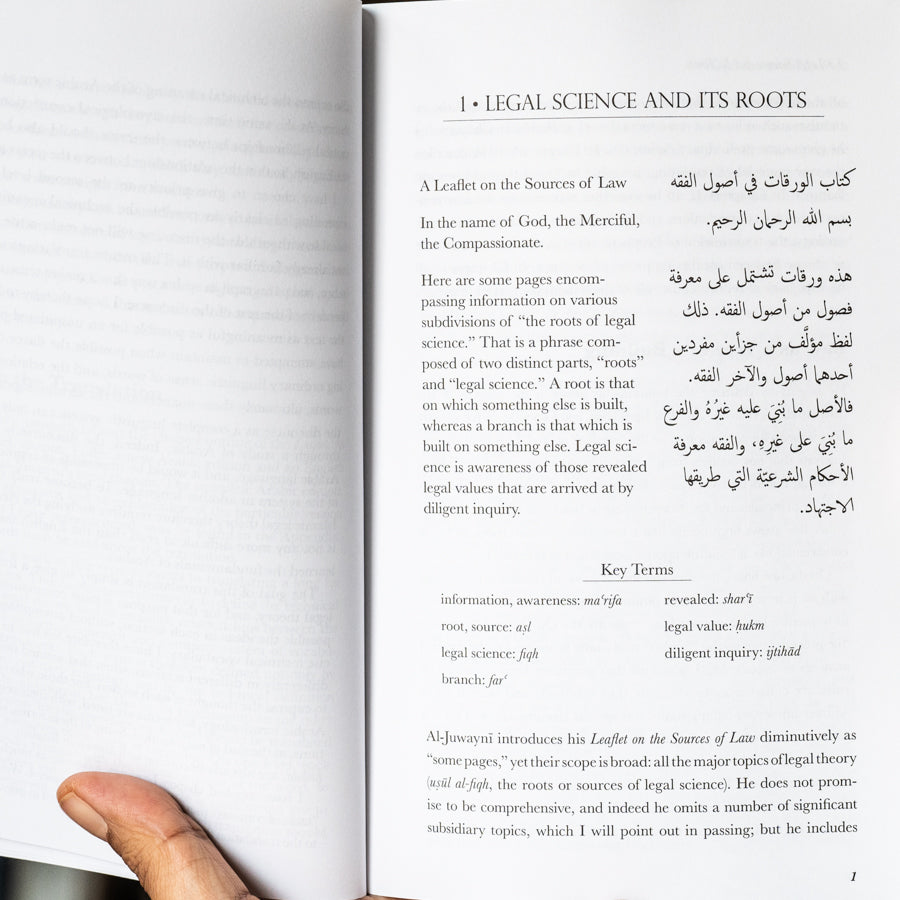 1 • LEGAL SCIENCE AND ITS ROOTS
A Leaflet on the Sources of Law
In the name of God, the Merciful,
the Compassionate.
Here are some pages encom-
passing information on various
subdivisions of “the roots of legal
science.” That is a phrase com-
posed of two distinct parts, “roots”
and “legal science.” A root is that
on which something else is built,
whereas a branch is that which is
built on something else. Legal sci-
ence is awareness of those revealed
legal values that are arrived at by
diligent inquiry.
كتاب الورقات في أصول الفقه
بسم الله الرحمان الرحيم.
هذه ورقات تشتمل على معرفة
فصول من أصول الفقه. ذلك
لفظ مؤلَّف من جزأين مفردين
أحدهما أصول والآخر الفقه.
فالأصل ما بُنِيَ عليه غيرُهُ والفرع
ما بُنِيَ على غيرِهِ، والفقه معرفة
الأحكام الشرعيّة التي طريقها
الاجتهاد.
Key Terms
information, awareness: maʿrifa
root, source: aṣl
legal science: fiqh
branch: farʿ
revealed: sharʿī
legal value: ḥukm
diligent inquiry: ijtihād
Al-Juwaynī introduces his Leaflet on the Sources of Law diminutively as
“some pages,” yet their scope is broad: all the major topics of legal theory
(uṣūl al-fiqh, the roots or sources of legal science). He does not prom-
ise to be comprehensive, and indeed he omits a number of significant
subsidiary topics, which I will point out in passing; but he includes
1